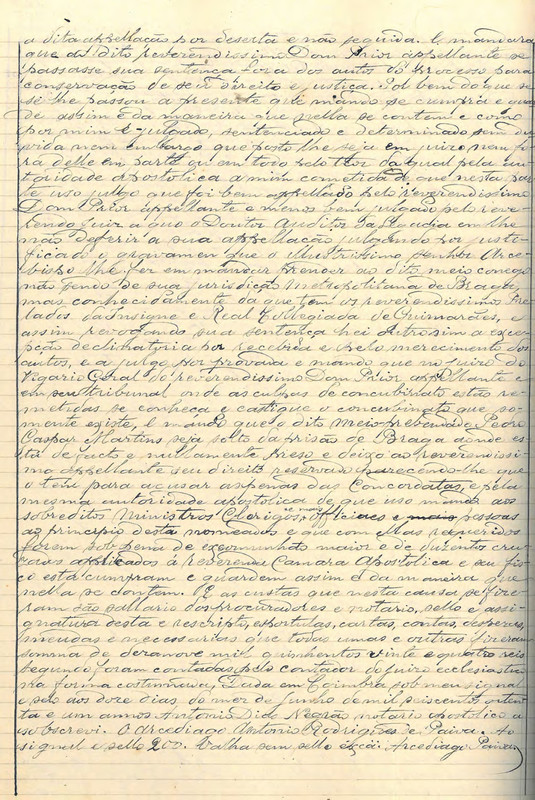 a dita appellação por deserta e não seguida. E mandara
que ao dito reverendissimo Dom Prior appellante se
passasse sua sentença fora dos autos do processo para
conservação de seu direito e justiça. Pol bem do que se
si lhe passou a presente que mando se cumpra e guar
de assim e da maneira que nella se contem e como
por mim é julgado, sentenciado e determinado sem du
vida nem embargo que posto lhe seja em juizo nem fo
ra delle em parte ou em todo pelo theor da qual pela au
toridade Apostolica a mim comettida de que nesta par
te uso julgo que foi bem appellado pelo reverendissimo
Dom Prior appellante e menos bem julgado pelo reve
rendo juiz a quo o Doutor Auditor da Legacia em lhe
não deferir a sua appellação julgando por justi
ficado o gravamen que o illustrissimo senhor Arce
bispo lhe fez em mandar prender ao dito meio conego
não sendo de sua jurisdição Metropolitana de Braga,
mas conhecidamente da que tem os reverendissimos Pre
lados da Insigne e Real Collegiada de Guimarães, e
assim revogando sua sentença hei outrosim a excep
pção declinatoria por recebida e pelo merecimento dos
autos, e a julgo por provada e mando que no juizo do
Vigario Geral do reverendissimo Dom Prior appellante e
em seu tribunal onde as culpas de concubinato estão re
metidas se conheça e castigue o concubinato que so-
mente existe, e mando que o dito Meio prebendado Pedro
Gaspar Martins seja solto da prisão de Braga aonde es
tá de facto e nullamente preso e deixo ao reverendissi
mo appellante seu direito reservado parecendo-lhe que
o tem para acusar as penas das Concordatas, e pela
mesma autoridade apostolica de que uso mando aos
sobreditos Ministros Clerigos, e mais officiaes e mais pessoas
ao principio desta nomeados e que com ellas requeridos
forem sob pena de excomunhão maior e de duzentos cru
zados applicados á reverenda Camara Apostolica e seu fis
co esta cumpram e guardem assim e da maneira que
nella se contem. E as custas que nesta causa se fize
ram são sallario dos procuradores e notario, sello e assi-
gnatura desta e rescripto, esportulas, cartas, contas, despezas,
miudas e necessarias que todas umas e outras fizeram
somma de dezanove mil quinhentos vinte e quatro reis
segundo foram contadas pelo contador do juizo ecclesiasti
na forma costumada. Dada em Coimbra sob meu signal
e sello aos doze dias do mez de Junho de mil seiscentos oiten
ta e um annos. Antonio Dide Negrão, notario apostolico a
sobscrevi. O Arcediago Antonio Rodrigues de Paiva. Ao
signal e sello 200. Valha sem sello ex cã: Arcediago Paiva.